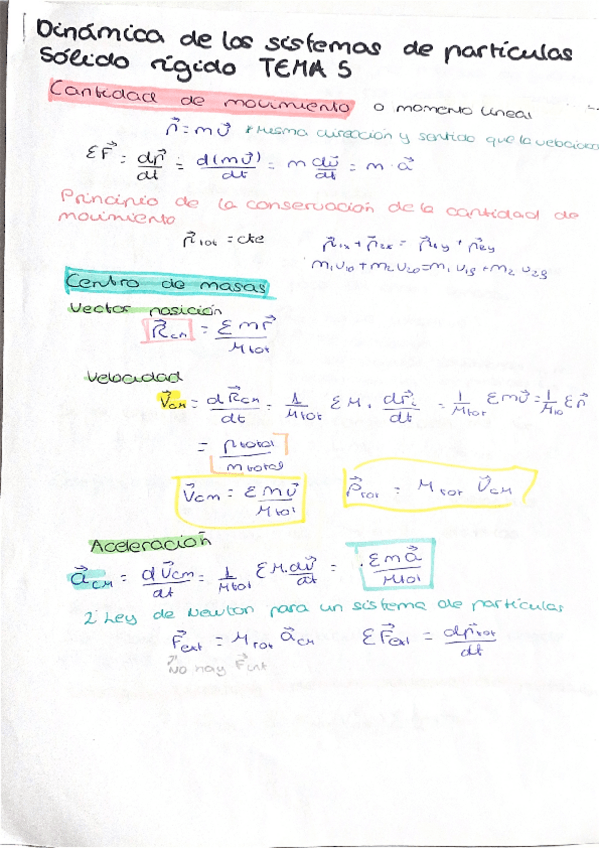 Dinámica de los sistemas de partículas
Sólido rígido TEMA 5
Cantidad de movimiento o momento lineal
p⃗ = m v⃗ * misma dirección y sentido que la velocidad
ΣF⃗ = dp⃗/dt = d(m v⃗)/dt = m dv⃗/dt = m · a⃗
Principio de la conservación de la cantidad de
movimiento
p⃗tot = cte p⃗1x + p⃗2x = p⃗1y + p⃗2y
m₁v₁₀ + m₂v₂₀ = m₁v₁f + m₂v₂f
Centro de masas
Vector posición
R⃗cm = Σm r⃗ / Mtot
Velocidad
V⃗cm = dR⃗cm/dt = 1/Mtot ΣM. dr⃗i/dt = 1/Mtot Σmv⃗ = 1/Mto Σp⃗
= ptotal / mtotal
V⃗cm = Σ m v⃗ / Mtot P⃗tot = Mtot V⃗cm
Aceleración
a⃗cm = dv⃗cm/dt = 1/Mtot ΣM. dv⃗/dt = Σm a⃗ / Mtot
2ª Ley de Newton para un sistema de partículas
F⃗ext = Mtot a⃗cm ΣF⃗ext = dp⃗tot/dt
No hay F⃗int